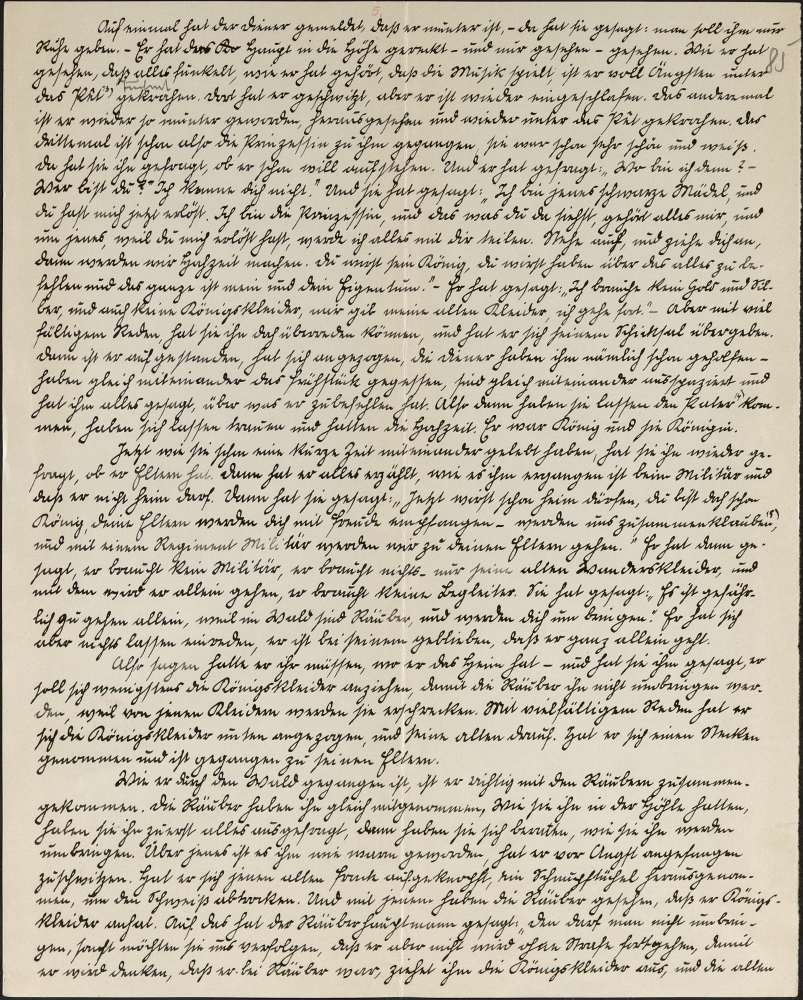 5.
Auf einmal hat der Diener gemeldet, daß er munter ist, – da hat sie gesagt: man soll ihm nur
Ruhe geben. – Er hat das Haupt in die Höhe gereckt – und nur gesehen – gesehen. Wie er hat
85
gesehen, daß alles funkelt, wie er hat gehört, daß die Musik spielt, ist er voll Ängsten unter
das Pet gekrochen. Dort hat er geschwitzt, aber er ist wieder eingeschlafen. Das anderemal
ist er wieder so munter geworden, herausgesehen und wieder unter das Pet gekrochen. Das
drittemal ist schon also die Prinzessin zu ihm gegangen, sie war schon sehr schön und weiß.
Da hat sie ihn gefragt, ob er schon will aufstehen. Und er hat gefragt: „Wo bin ich denn? –
Wer bist du?“ „Ich kenne dich nicht.“ Und sie hat gesagt: „Ich bin jenes schwarze Mädel, und
du hast mich jetzt erlöst. Ich bin die Prinzessin, und das was du da siehst, gehört alles mir, und
um jenes, weil du mich erlöst hast, werde ich alles mit dir teilen. Stehe auf, und ziehe dich an,
dann werden wir Hochzeit machen. Du wirst sein König, du wirst haben über das alles zu be-
fehlen und das ganze ist mein und dein Eigentum.“ – Er hat gesagt: „Ich brauche kein Gold und Sil-
ber, und auch keine Königskleider, nur gib meine alten Kleider, ich gehe fort.“ – Aber mit viel
fältigem Reden, hat sie ihn doch überreden können, und hat er sich seinem Schicksal übergeben.
Dann ist er aufgestanden, hat sich angezogen, die Diener haben ihm nämlich schon geholfen –
haben gleich miteinander das Frühstück gegessen, sind gleich miteinander ausspaziert und
hat ihm alles gesagt, über was er zu befehlen hat. Also dann haben sie lassen den Pater kom-
men, haben sich lassen trauen und hatten die Hochzeit. Er war König und sie Königin.
Jetzt wie sie schon eine kurze Zeit miteinander gelebt haben, hat sie ihn wieder ge-
fragt, ob er Eltern hat. Dann hat er alles erzählt, wie es ihm ergangen ist beim Militär und
daß er nicht heim darf. Dann hat sie gesagt: „Jetzt wirst schon heim dürfen, du bist doch schon
König, deine Eltern werden dich mit Freude empfangen – werden uns zusammenklauben,
und mit einem Regiment Militär werden wir zu deinen Eltern gehen.“ Er hat dann ge-
sagt, er braucht kein Militär, er braucht nichts – nur seine alten Wanderskleider, und
mit dem wird er allein gehen, er braucht keine Begleiter. Sie hat gesagt: „Es ist gefähr-
lich zu gehen allein, weil im Wald sind Räuber, und werden dich umbringen.“ Er hat sich
aber nichts lassen einreden, er ist bei seinem geblieben, daß er ganz allein geht.
Also sagen hatte er ihr müssen, wo er das Heim hat – und hat sie ihm gesagt, er
soll sich wenigstens die Königskleider anziehen, damit die Räuber ihn nicht umbringen wer-
den, weil von jenen Kleidern werden sie erschrecken. Mit vielfältigem Reden hat er
sich die Königskleider unten angezogen, und seine alten drauf. Hat er sich einen Stecken
genommen und ist gegangen zu seinen Eltern.
Wie er durch den Wald gegangen ist, ist er richtig mit den Räubern zusammen-
gekommen. Die Räuber haben ihn gleich mitgenommen. Wie sie ihn in der Höhle hatten,
haben sie ihn zuerst alles ausgefragt, dann haben sie sich beraten, wie sie ihn werden
umbringen. Über jenes ist es ihm nun warm geworden, hat er vor Angst angefangen
zu schwitzen. Hat er sich jenen alten Frack aufgeknöpft, ein Schnupftüchel herausgenom-
men, um den Schweiß abtrocken. Und mit jenem haben die Räuber gesehen, daß er Königs-
kleider anhat. Auf das hat der Räuberhauptmann gesagt: „Den darf man nicht umbrin-
gen, sonst möchten sie uns verfolgen, daß er aber nicht wird ohne Strafe fortgehen, damit
er wird denken, daß er bei Räuber war, ziehet ihm die Königskleider aus, und die alten